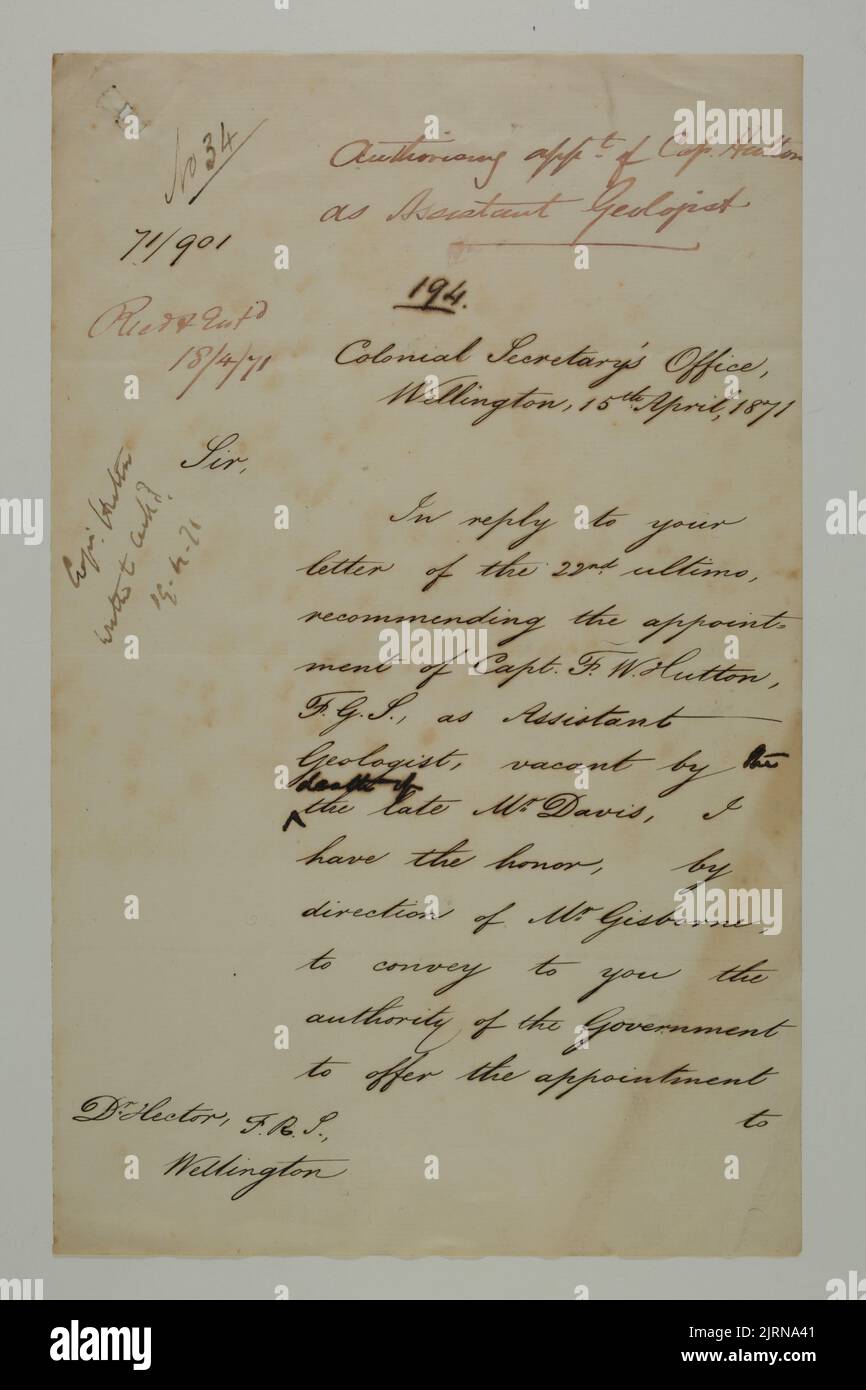 No 34
Authorising appt. of Cap. Hutton
as Assistant Geologist
71/901
194.
Recd & Entd
18/4/71
Colonial Secretary's Office,
Wellington, 15th April, 1871
Sir,
In reply to your
letter of the 22nd ultimo,
recommending the appoint=
ment of Capt. F. W. Hutton,
F.G.S., as Assistant
Geologist, vacant by the
death of
the late Mr. Davis, I
have the honor, by
direction of Mr. Gisborne,
to convey to you the
authority of the Government
to offer the appointment
to
Dr. Hector, F.R.S.,
Wellington
Hutton
alamy
Image ID: 2JRNA41
www.alamy.com